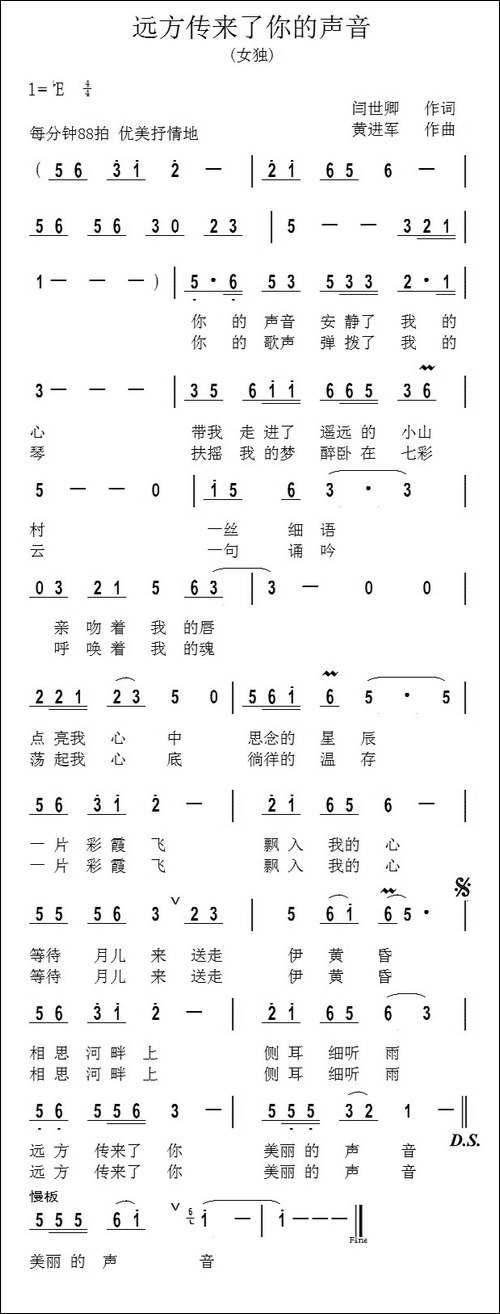 远方传来了你的声音
(女独)
1=♭E 4/4
闫世卿 作词
每分钟88拍 优美抒情地
黄进军 作曲
( 5 6 3 1 2 — | 2 1 6 5 6 — |
5 6 5 6 3 0 2 3 | 5 — — 3 2 1 |
1 — — — ) | 5 · 6 5 3 5 3 3 2 · 1 |
你 的 声音 安 静了 我 的
你 的 歌声 弹 拨了 我 的
3 — — — | 3 5 6 1 1 6 6 5 3 6 |
心 带我 走 进了 遥远 的 小山
琴 扶摇 我 的梦 醉卧 在 七彩
5 — — 0 | 1 5 6 3 · 3 |
村 一丝 细 语
云 一句 诵 吟
0 3 2 1 5 6 3 | 3 — 0 0 |
亲 吻 着 我 的唇
呼 唤 着 我 的魂
2 2 1 2 3 5 0 | 5 6 1 6 5 · 5 |
点 亮我 心 中 思念的 星 辰
荡 起我 心 底 徜徉的 温 存
5 6 3 1 2 — | 2 1 6 5 6 — |
一 片 彩 霞 飞 飘 入 我的 心
一 片 彩 霞 飞 飘 入 我的 心
5 5 5 6 3 V 2 3 | 5 6 1 6 5 · |
等待 月儿 来 送走 伊 黄 昏
等待 月儿 来 送走 伊 黄 昏
5 6 3 1 2 — | 2 1 6 5 6 3 |
相 思 河 畔 上 侧 耳 细听 雨
相 思 河 畔 上 侧 耳 细听 雨
5 6 5 5 6 3 — | 5 5 5 3 2 1 — ||
D.S.
远 方 传来了 你 美丽 的 声 音
远 方 传来了 你 美丽 的 声 音
慢板
5 5 5 6 1 V 6 1 — | 1 — — — ||
Fine
美丽 的 声 音